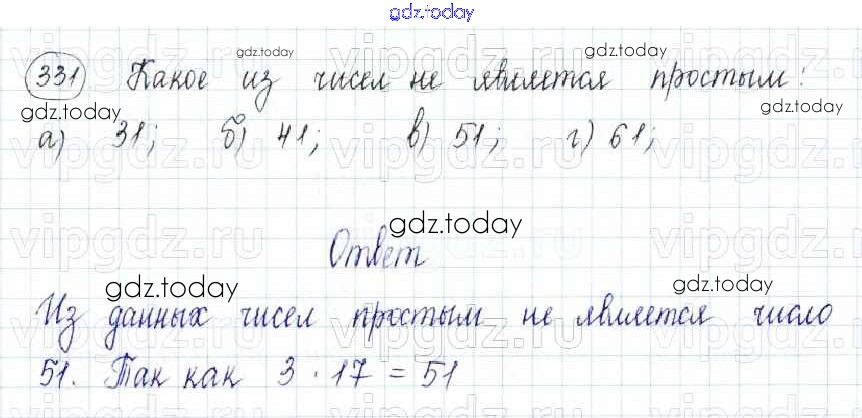 gdz.today
331 Какое из чисел не является простым:
а) 31; б) 41; в) 51; г) 61;
Ответ
Из данных чисел простым не является число
51. Так как 3 · 17 = 51
gdz.today
gdz.today
gdz.today
gdz.today
gdz.today
gdz.today
gdz.today
vipgdz.ru
vipgdz.ru
vipgdz.ru